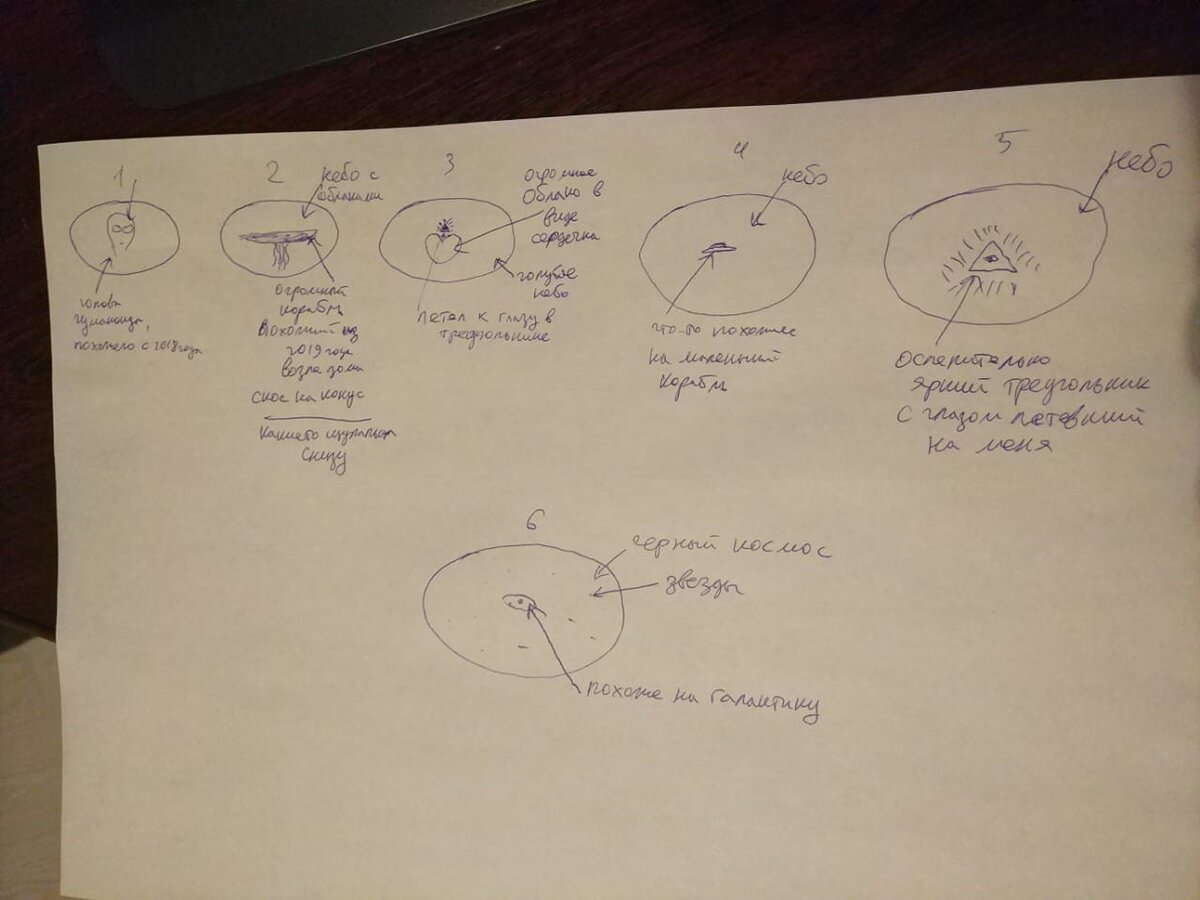 1
голова
гуманоида,
похожего с 2018 года
2
небо с
облаками
огромный
корабль
Похожий из
2019 года
возле дома
скос на конус
Какие-то щупальца
снизу
3
огромное
облако в
виде
сердечка
голубое
небо
летел к глазу в
треугольнике
4
небо
что-то похожее
на маленький
корабль
5
небо
Ослепительно
яркий треугольник
с глазом летевший
на меня
6
черный космос
звезды
похоже на галактику